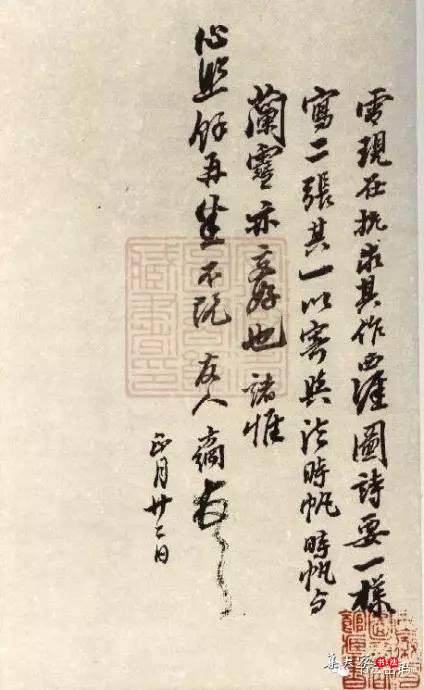 雪現在杭求其作西涯圖詩要一樣
寫二張其一以寄與法時帆時帆与
蘭雪亦交好也諸惟
心照餘再筆不既友人
正月廿二日
集大家
书法